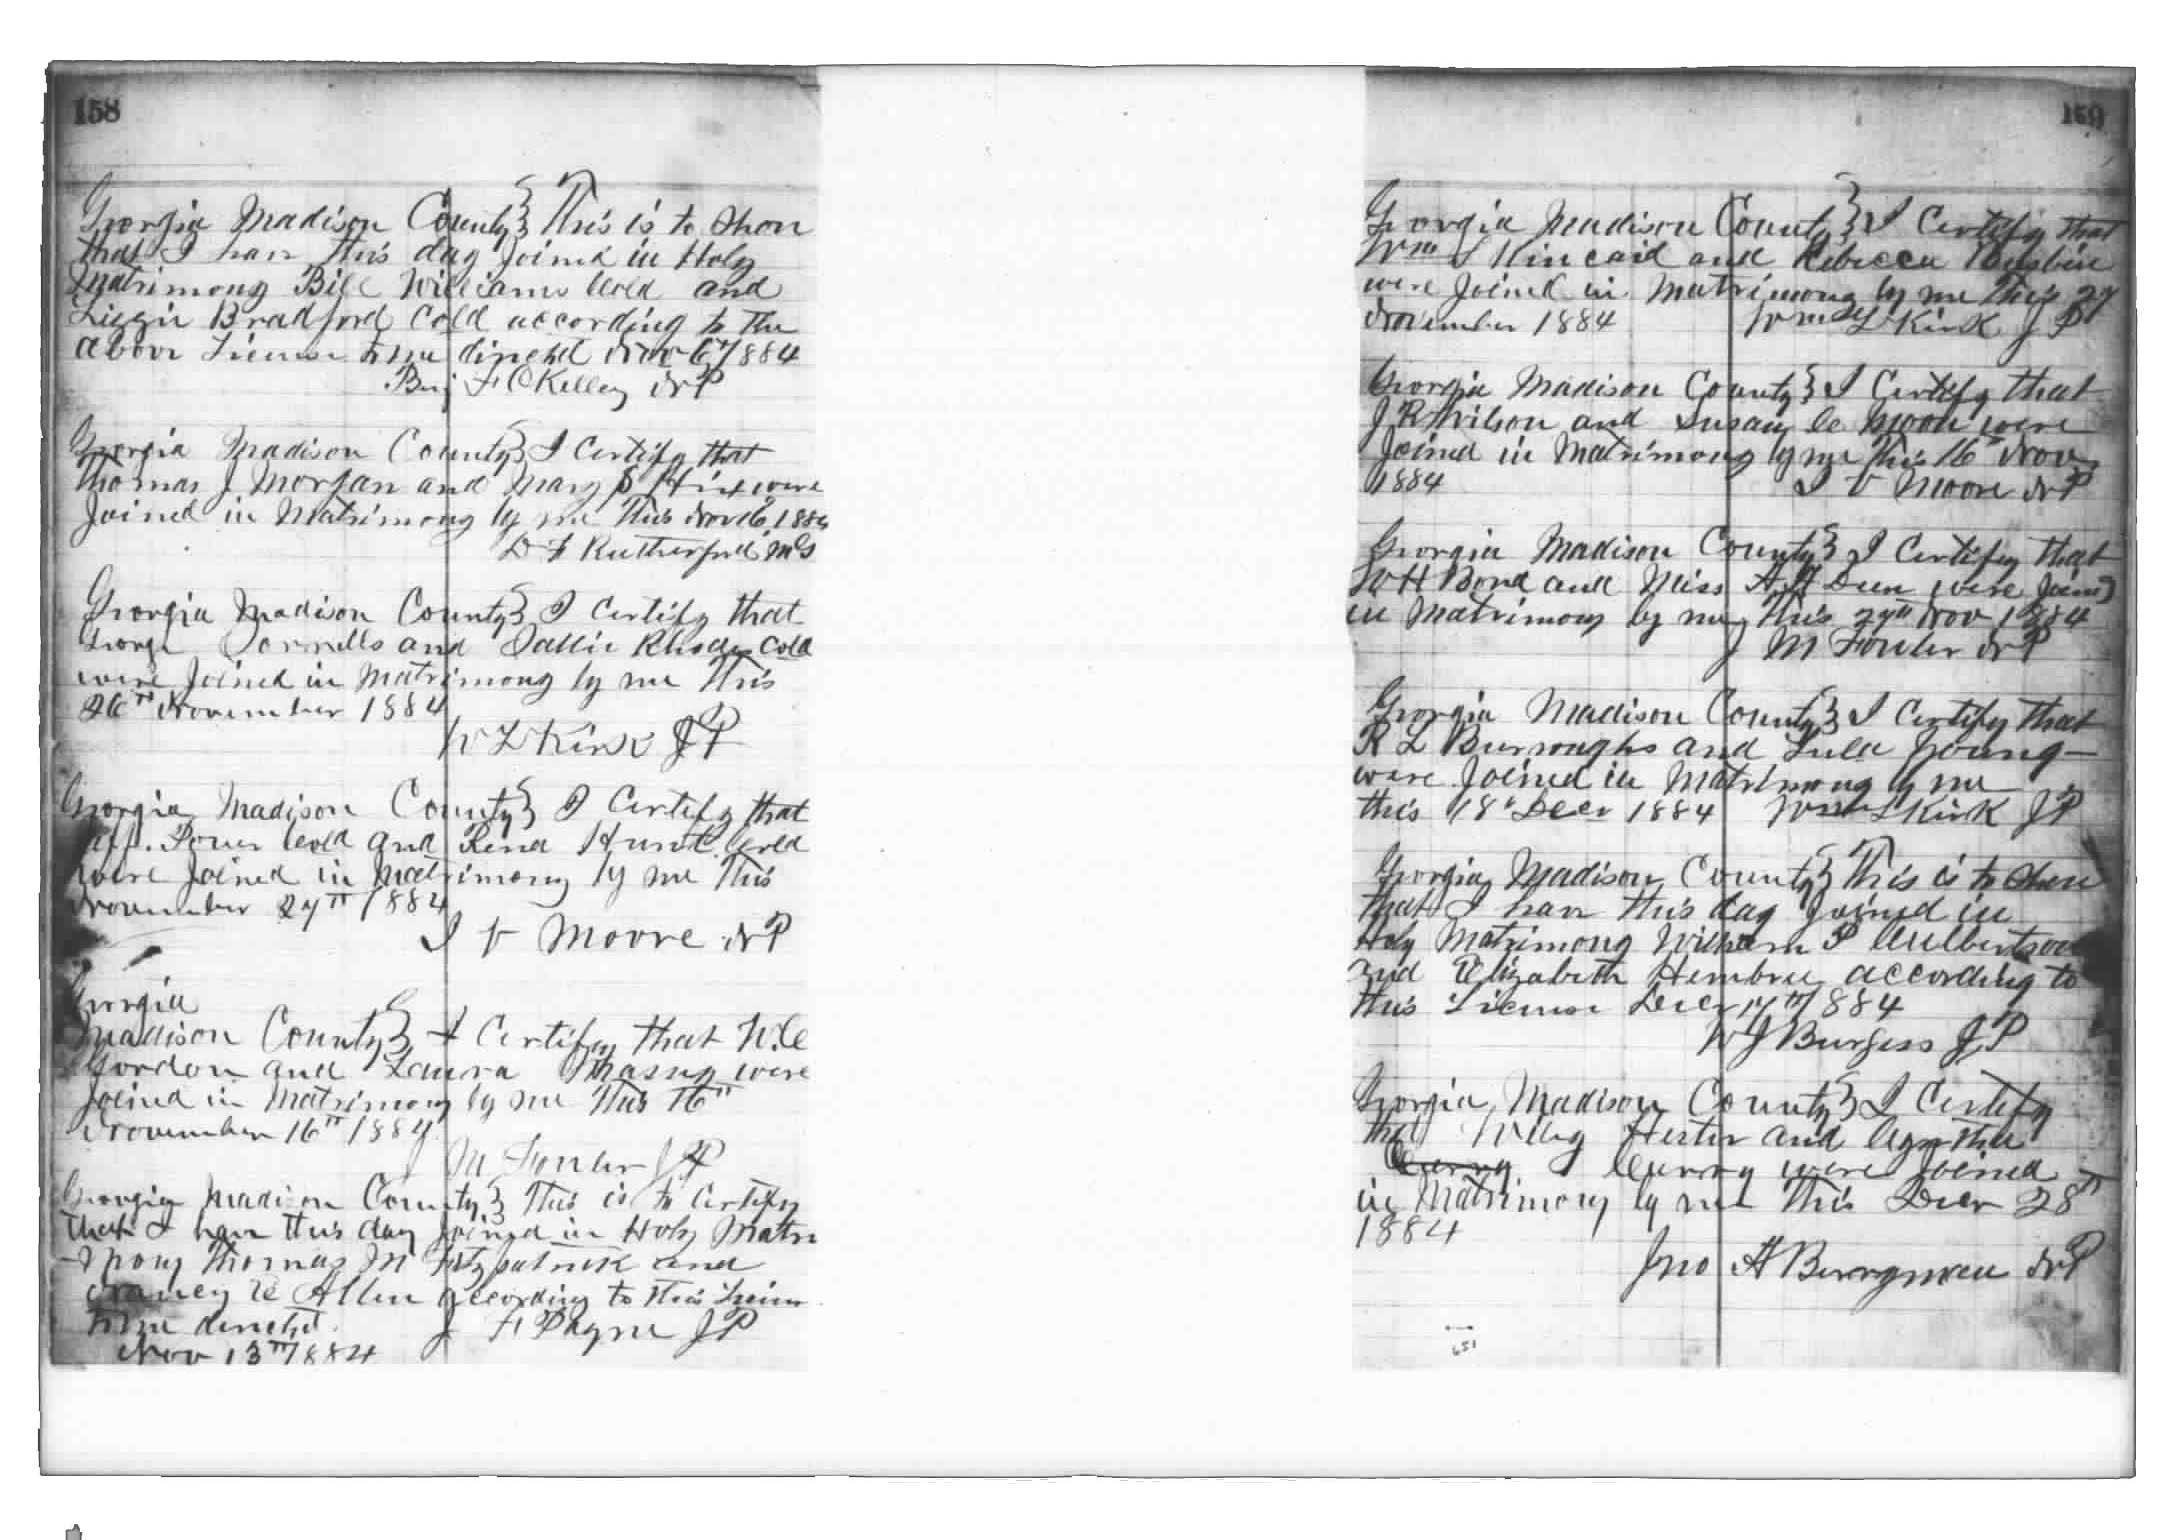 158
Georgia Madison County } This is to show
that I have this day Joined in Holy
Matrimony Bill Williams Cold and
Lizzie Bradford Cold according to the
above License to me directed Nov 6th 1884
Benj F OKelley NP
Georgia Madison County } I Certify that
Thomas J Morgan and Mary S Hix were
Joined in Matrimony by me This Nov 1884
D F Rutherford MG
Georgia Madison County } I Certify that
George Sorrells and Sallie Rhodes Cold
were Joined in Matrimony by me This
26th November 1884
W L Kirk JP
Georgia Madison County } I Certify that
Cold and Rena Hunt Cold
were Joined in Matrimony by me This
November 27th 1884
I V Moore NP
Georgia
Madison County } I Certify that W.C
Gordon and Laura were
Joined in Matrimony by me This 16th
November 16th 1884
M Fowler JP
Georgia Madison County } This is to Certify
that I have this day Joined in Holy Matri
-mony Thomas M Fitzpatrick and
Nancy E Allen according to this License
to me directed
J F Payne JP
Nov 13th 1884
159
Georgia Madison County } I Certify that
Wm S Kincaid and Rebecca
were Joined in Matrimony by me This 27
November 1884 Wm L Kirk JP
Georgia Madison County } I Certify that
J R Wilson and Susan C Moon were
Joined in Matrimony by me This 16th Nov
1884 I V Moore NP
Georgia Madison County } I Certify that
W H Bond and Miss A H Deen were Joined
in Matrimony by me This 27th Nov 1884
J M Fowler NP
Georgia Madison County } I Certify that
R L Burroughs and Lula Young
were Joined in Matrimony by me
this 18th Decr 1884 Wm L Kirk JP
Georgia Madison County } This is to show
that I have this day Joined in
Holy Matrimony William P Culbertson
and Elizabeth Hembree according to
this License Decr 17th 1884
W J Burgess JP
Georgia Madison County } I Certify
that Wiley Hester and Agatha
Curry Curry were Joined
in Matrimony by me This Decr 28th
1884
Jno H Berryman NP
651